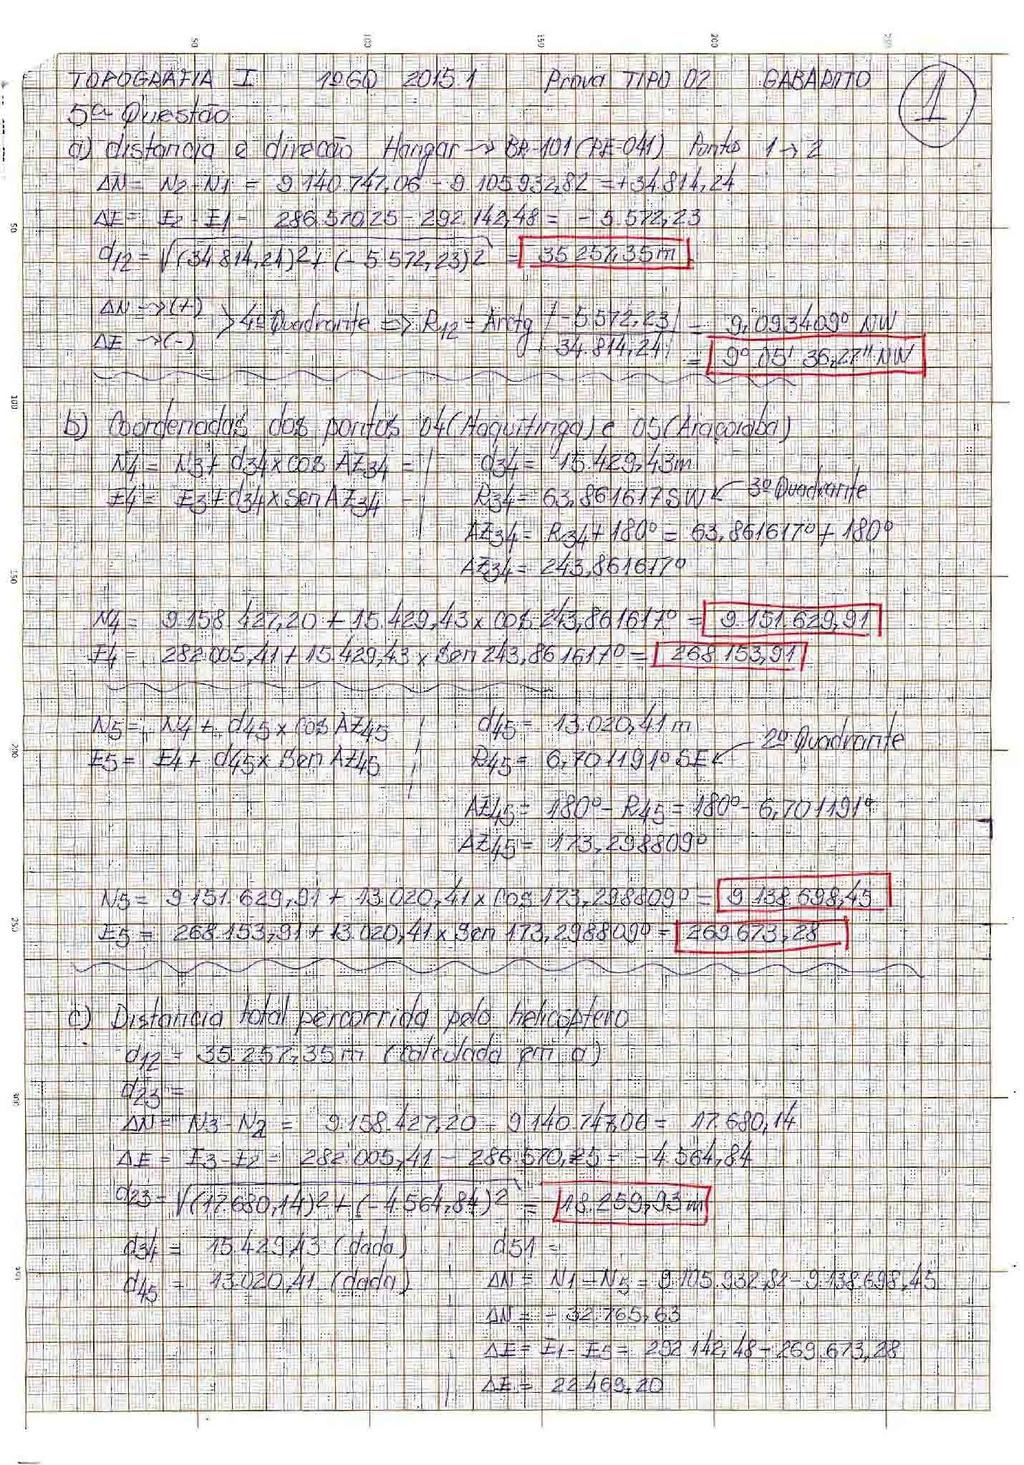 TOPOGRAFIA I 1º GQ 2015.1 Prova TIPO 02 GABARITO 1
5ª Questão
a) distancia e direcão Hangar → BR-101 (PE-041) Ponto 1 → 2
ΔN = N2 - N1 = 9.140.747,06 - 9.105.932,82 = +34.814,24
ΔE = E2 - E1 = 286.570,25 - 292.142,48 = -5.572,23
d12 = √(34.814,24)2 + (-5.572,23)2 = 35.257,35m
ΔN → (+)
ΔE → (-)
4º Quadrante => R12 = Arctg |-5.572,23 / 34.814,24| = 9,093409º NW
= 9º 05' 36,27" NW
b) Coordenadas dos pontos 04 (Itaquitinga) e 05 (Araçoiaba)
N4 = N3 + d34 x cos AZ34 = d34 = 15.429,43m
E4 = E3 + d34 x sen AZ34 = R34 = 63,861617 SW ← 3º Quadrante
AZ34 = R34 + 180º = 63,861617º + 180º
AZ34 = 243,861617º
N4 = 9.158.427,20 + 15.429,43 x cos 243,861617º = 9.151.629,91
E4 = 282.005,41 + 15.429,43 x sen 243,861617º = 268.153,91
N5 = N4 + d45 x cos AZ45 d45 = 13.020,41 m
E5 = E4 + d45 x sen AZ45 R45 = 6,701191º SE ← 2º Quadrante
AZ45 = 180º - R45 = 180º - 6,701191º
AZ45 = 173,298809º
N5 = 9.151.629,91 + 13.020,41 x cos 173,298809º = 9.138.698,45
E5 = 268.153,91 + 13.020,41 x sen 173,298809º = 269.673,28
c) Distancia total percorrida pelo helicóptero
d12 = 35.257,35m (calculada em a)
d23 =
ΔN = N3 - N2 = 9.158.427,20 - 9.140.747,06 = 17.680,14
ΔE = E3 - E2 = 282.005,41 - 286.570,25 = -4.564,84
d23 = √(17.680,14)2 + (-4.564,84)2 = 18.259,93 m
d34 = 15.429,43 (dada) d51 =
d45 = 13.020,41 (dada) ΔN = N1 - N5 = 9.105.932,82 - 9.138.698,45
ΔN = -32.765,63
ΔE = E1 - E5 = 292.142,48 - 269.673,28
ΔE = 22.469,20